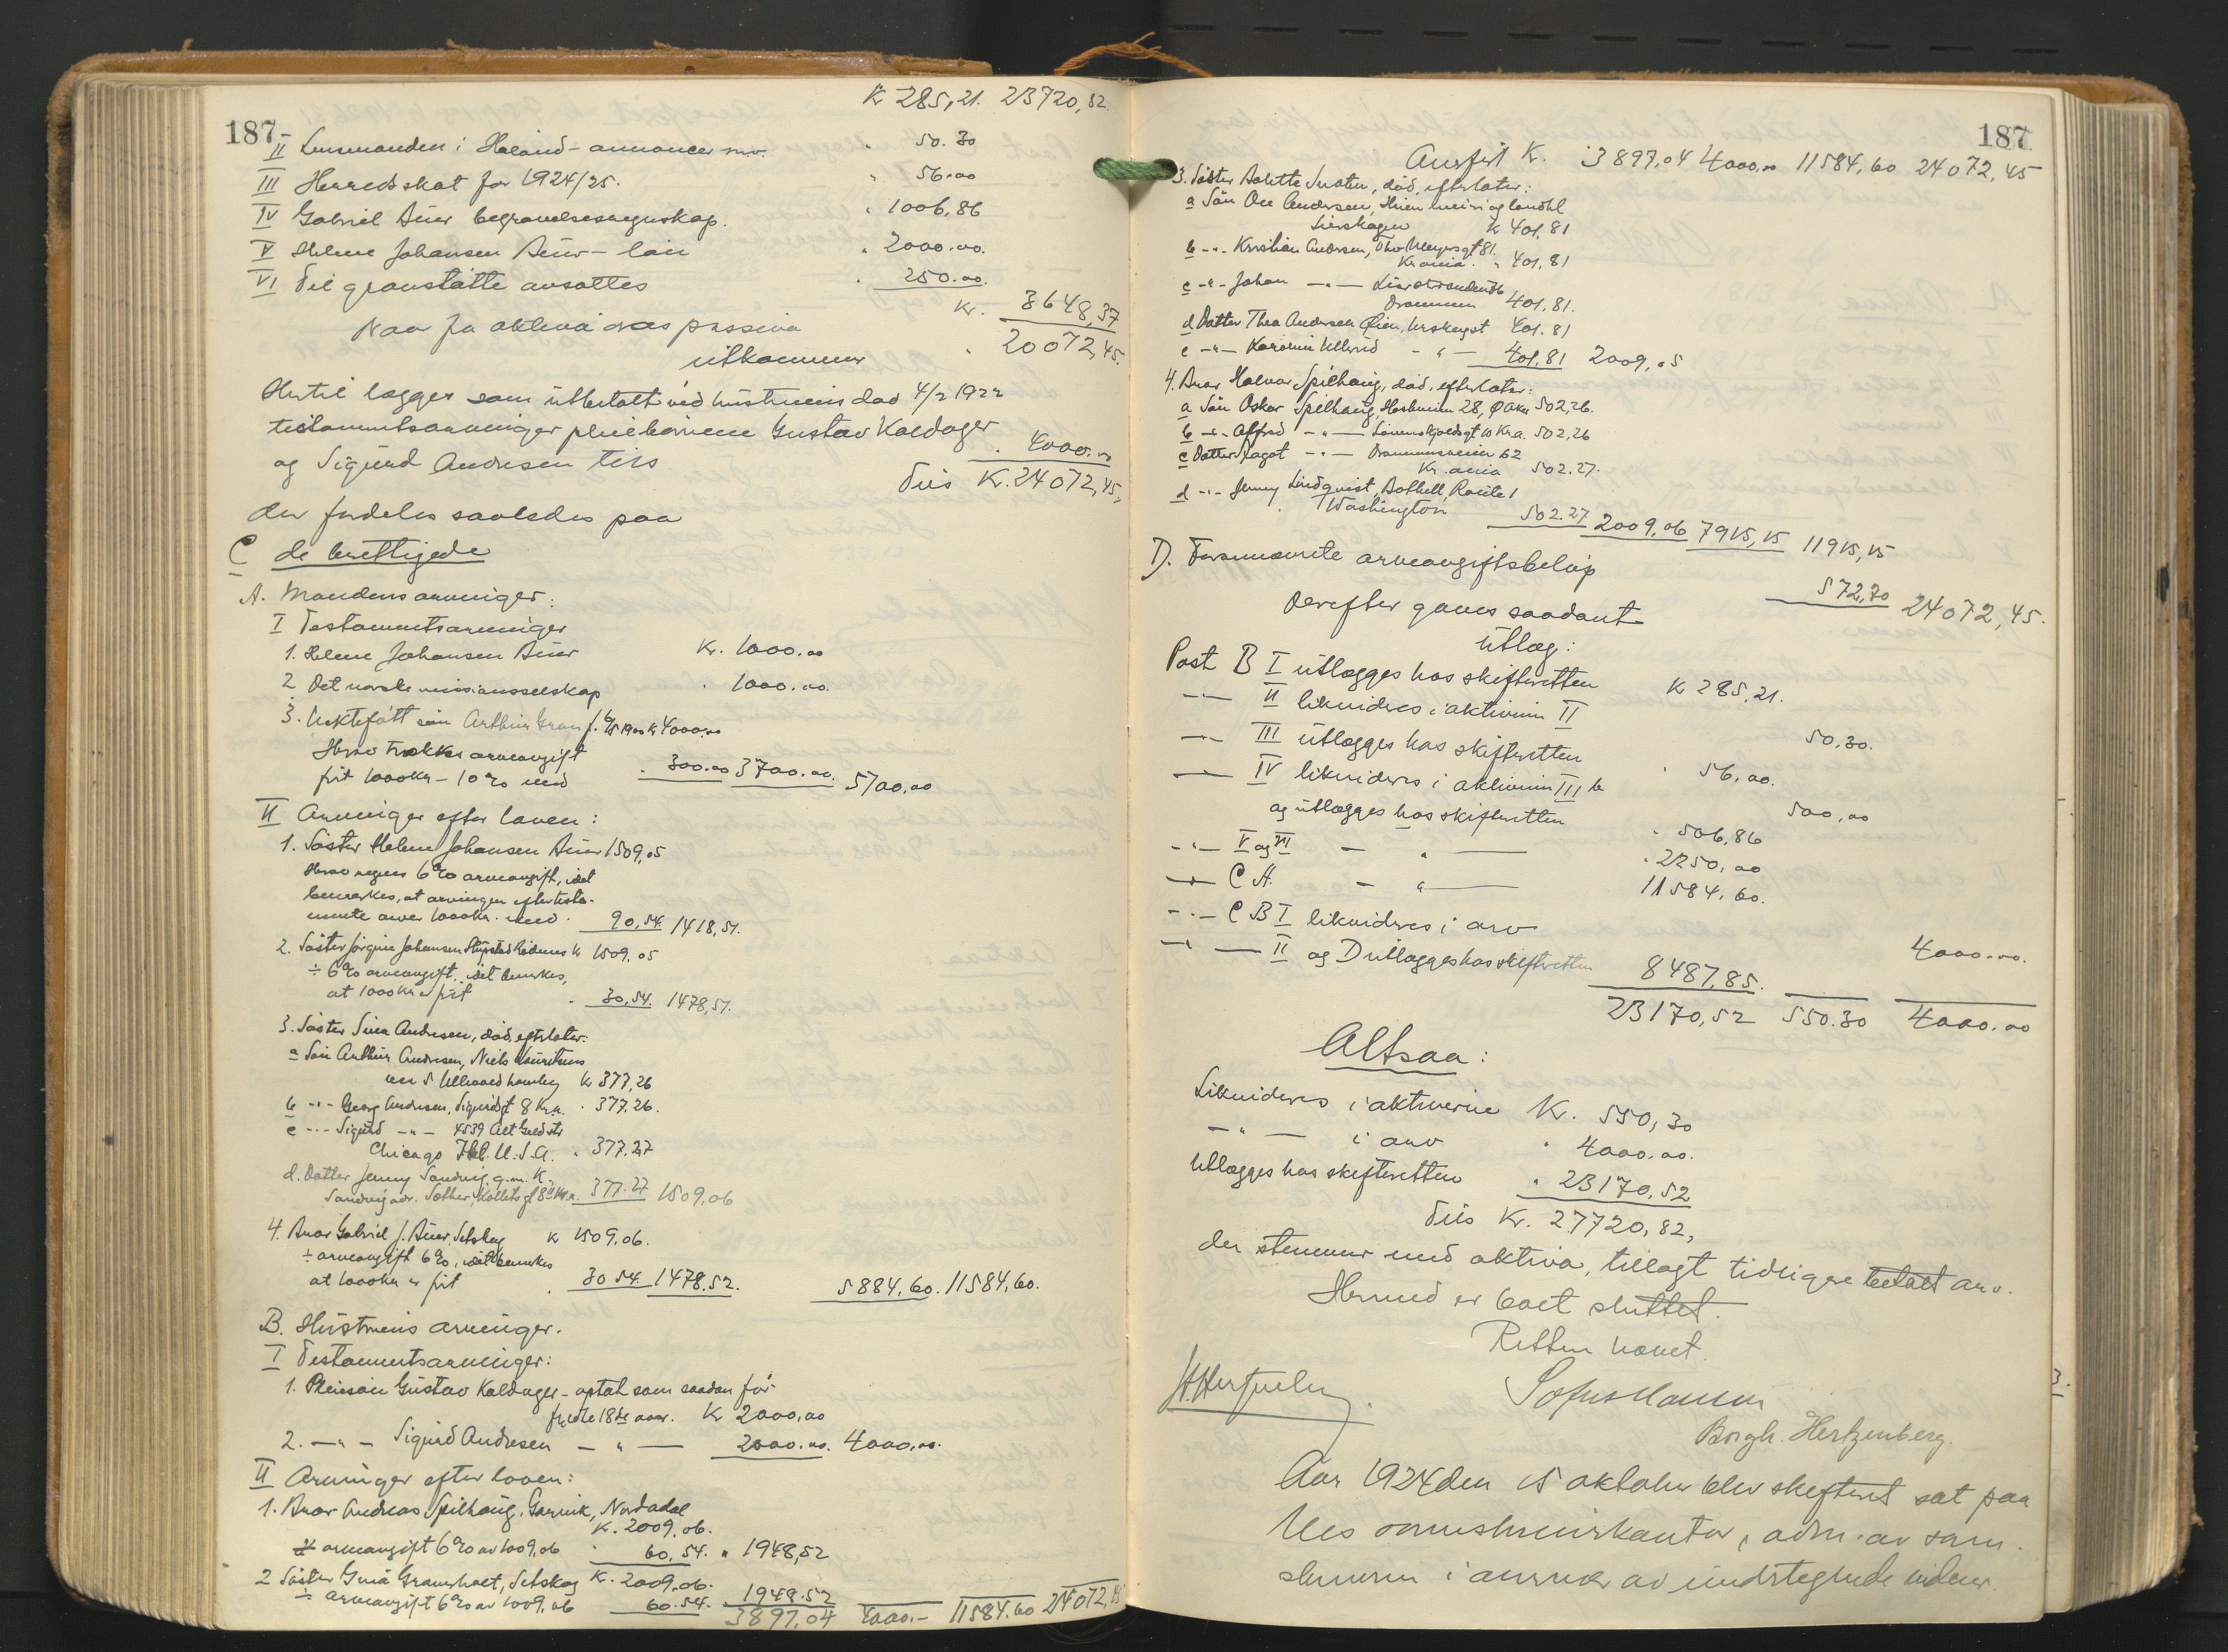 K 285,21. 23720,82.
187
II Lensmanden i Høland - annoncer mv. " 50.30
III Herredsskat for 1924/25. " 56.00
IV Gabriel Auer begravelsesregnskap. " 1006,86
V Helene Johansen Auer - lån " 2000.00.
VI Til gravstøtte avsættes " 250.00.
Kr. 3648,37
Naar fra aktiva drages passiva
utkommer " 20072,45.
Hertil lægges som utbetalt ved hustruens død 4/2 1922
testamentsarvinger pleiebørnene Gustav Kaldager
og Sigurd Andresen tils " 4000.00
Tils Kr. 24072,45,
der fordeles saaledes paa
C de berettigede
A. Mandens arvinger:
I Testamentsarvinger
1. Helene Johansen Auer Kr. 1000.00
2 Det norske missionsselskap " 1000.00.
3. Uektefødt søn Arthur Gran f. 1900 K 4000.00
Herav trækkes arveavgift
frit 1000 Kr - 10% med " 300.00 3700.00. 5700.00
II Arvinger efter loven:
1. Søster Helene Johansen Auer 1509,05
Herav regnes 6% arveavgift, idet
bemerkes, at arvingen efter testa-
mente arver 1000 Kr. med " 90,54. 1418,51.
2. Søster Jørgine Johansen Kr 1509.05
÷ 6% arveavgift, idet bemerkes,
at 1000 Kr er frit " 30,54. 1478,51.
3. Søster Sina Andresen, død, efterlater:
a Søn Arthur Andresen, Niels Lauritsens
vei 5 Ullevaal haveby Kr 377,26
b -"- Georg Andresen, Sigurdsgt 8 Kr.a. " 377.26.
c -"- Sigurd -"- 4539
Chicago Ill. U.S.A. " 377.27
d. Datter Jenny Sandvig g.m. K.
Sandvig adr. Kollets gt 8 Kr.a. 377.27 1509,06
4. Bror Gabriel J. Auer, Setskog Kr 1509.06.
÷ arveavgift 6%, idet bemerkes
at 1000 Kr er frit " 30.54. 1478.52. 5884,60. 11584,60.
B. Hustruens arvinger.
I Testamentsarvinger:
1. Pleiesøn Gustav Kaldager - optat som saadan før
fyldte 18de aar. Kr 2000,00
2. -"- Sigurd Andresen -"- 2000.00. 4000,00.
II Arvinger efter loven:
1. Bror Andreas Spilhaug, Garvik, Nordadal
K. 2009.06.
÷ arveavgift 6% av 1009,06 " 60,54. " 1948,52
2 Søster Gina Gravshoel, Setskog K. 2009.06.
÷ arveavgift 6% av 1009,06 60.54. 1948.52
3897,04 4000.- 11584.60 24072,45
187
Anført K. 3897,04 4000,00 11584,60 24072,45
3. Søster død, efterlater:
a Søn Ole Andersen, meieri og landhl
Lierskogen K 401,81
b -"- Kristian Andersen, Thv Meyersgt 81.
Kr.ania. " 401,81
c -"- Johan -"- Lierstranden
Drammen 401,81.
d Datter Thea Andersen Øien, Urskog st 401.81
e -"- Karoline -"- 401,81 2009.05
4. Bror Halvor Spilhaug, død, efterlater:
a Søn Oskar Spilhaug, 28, Ø Aker 502,26.
b -"- Alfred -"- gt 10 Kr.a. 502,26
c Datter Dagot -"- Drammensveien 62
Kr.ania 502.27.
d -"- Jenny Lindquist, Bothell, Route 1
Washington 502.27 2009,06 7915,15 11915,15
D. Forannævnte arveavgiftsbeløp 572,70 24072,45.
Derefter gaves saadant
utlæg:
Post B I utlægges hos skifteretten K 285,21.
-"- II likvideres i aktivum II 50,30.
-"- III utlægges hos skifteretten " 56,00.
-"- IV likvideres i aktivum III b 500,00
og utlægges hos skifteretten " 506,86
-"- V og VI - " - " 2250,00
-"- C A. - " - 11584,60.
-"- C B I likvideres i arv 4000.00.
-"- II og D utlægges hos skifteretten 8487,85.
23170,52 550.30 4000.00
Altsaa:
Likvideres i aktiverne Kr. 550,30
-"- i arv " 4000.00.
Utlægges hos skifteretten " 23170,52
Tils Kr. 27720,82,
der stemmer med aktiva, tillagt tidligere betalt arv.
Hermed er boet sluttet.
Retten hævet.
H. Hertzenberg. Sofus Hansen
Borgh. Hertzenberg.
Aar 1924 den 15 oktober blev skifteret sat paa
Nes sorenskriverkontor, adm. av soren-
skriveren i nærvær av undertegnede vidner.